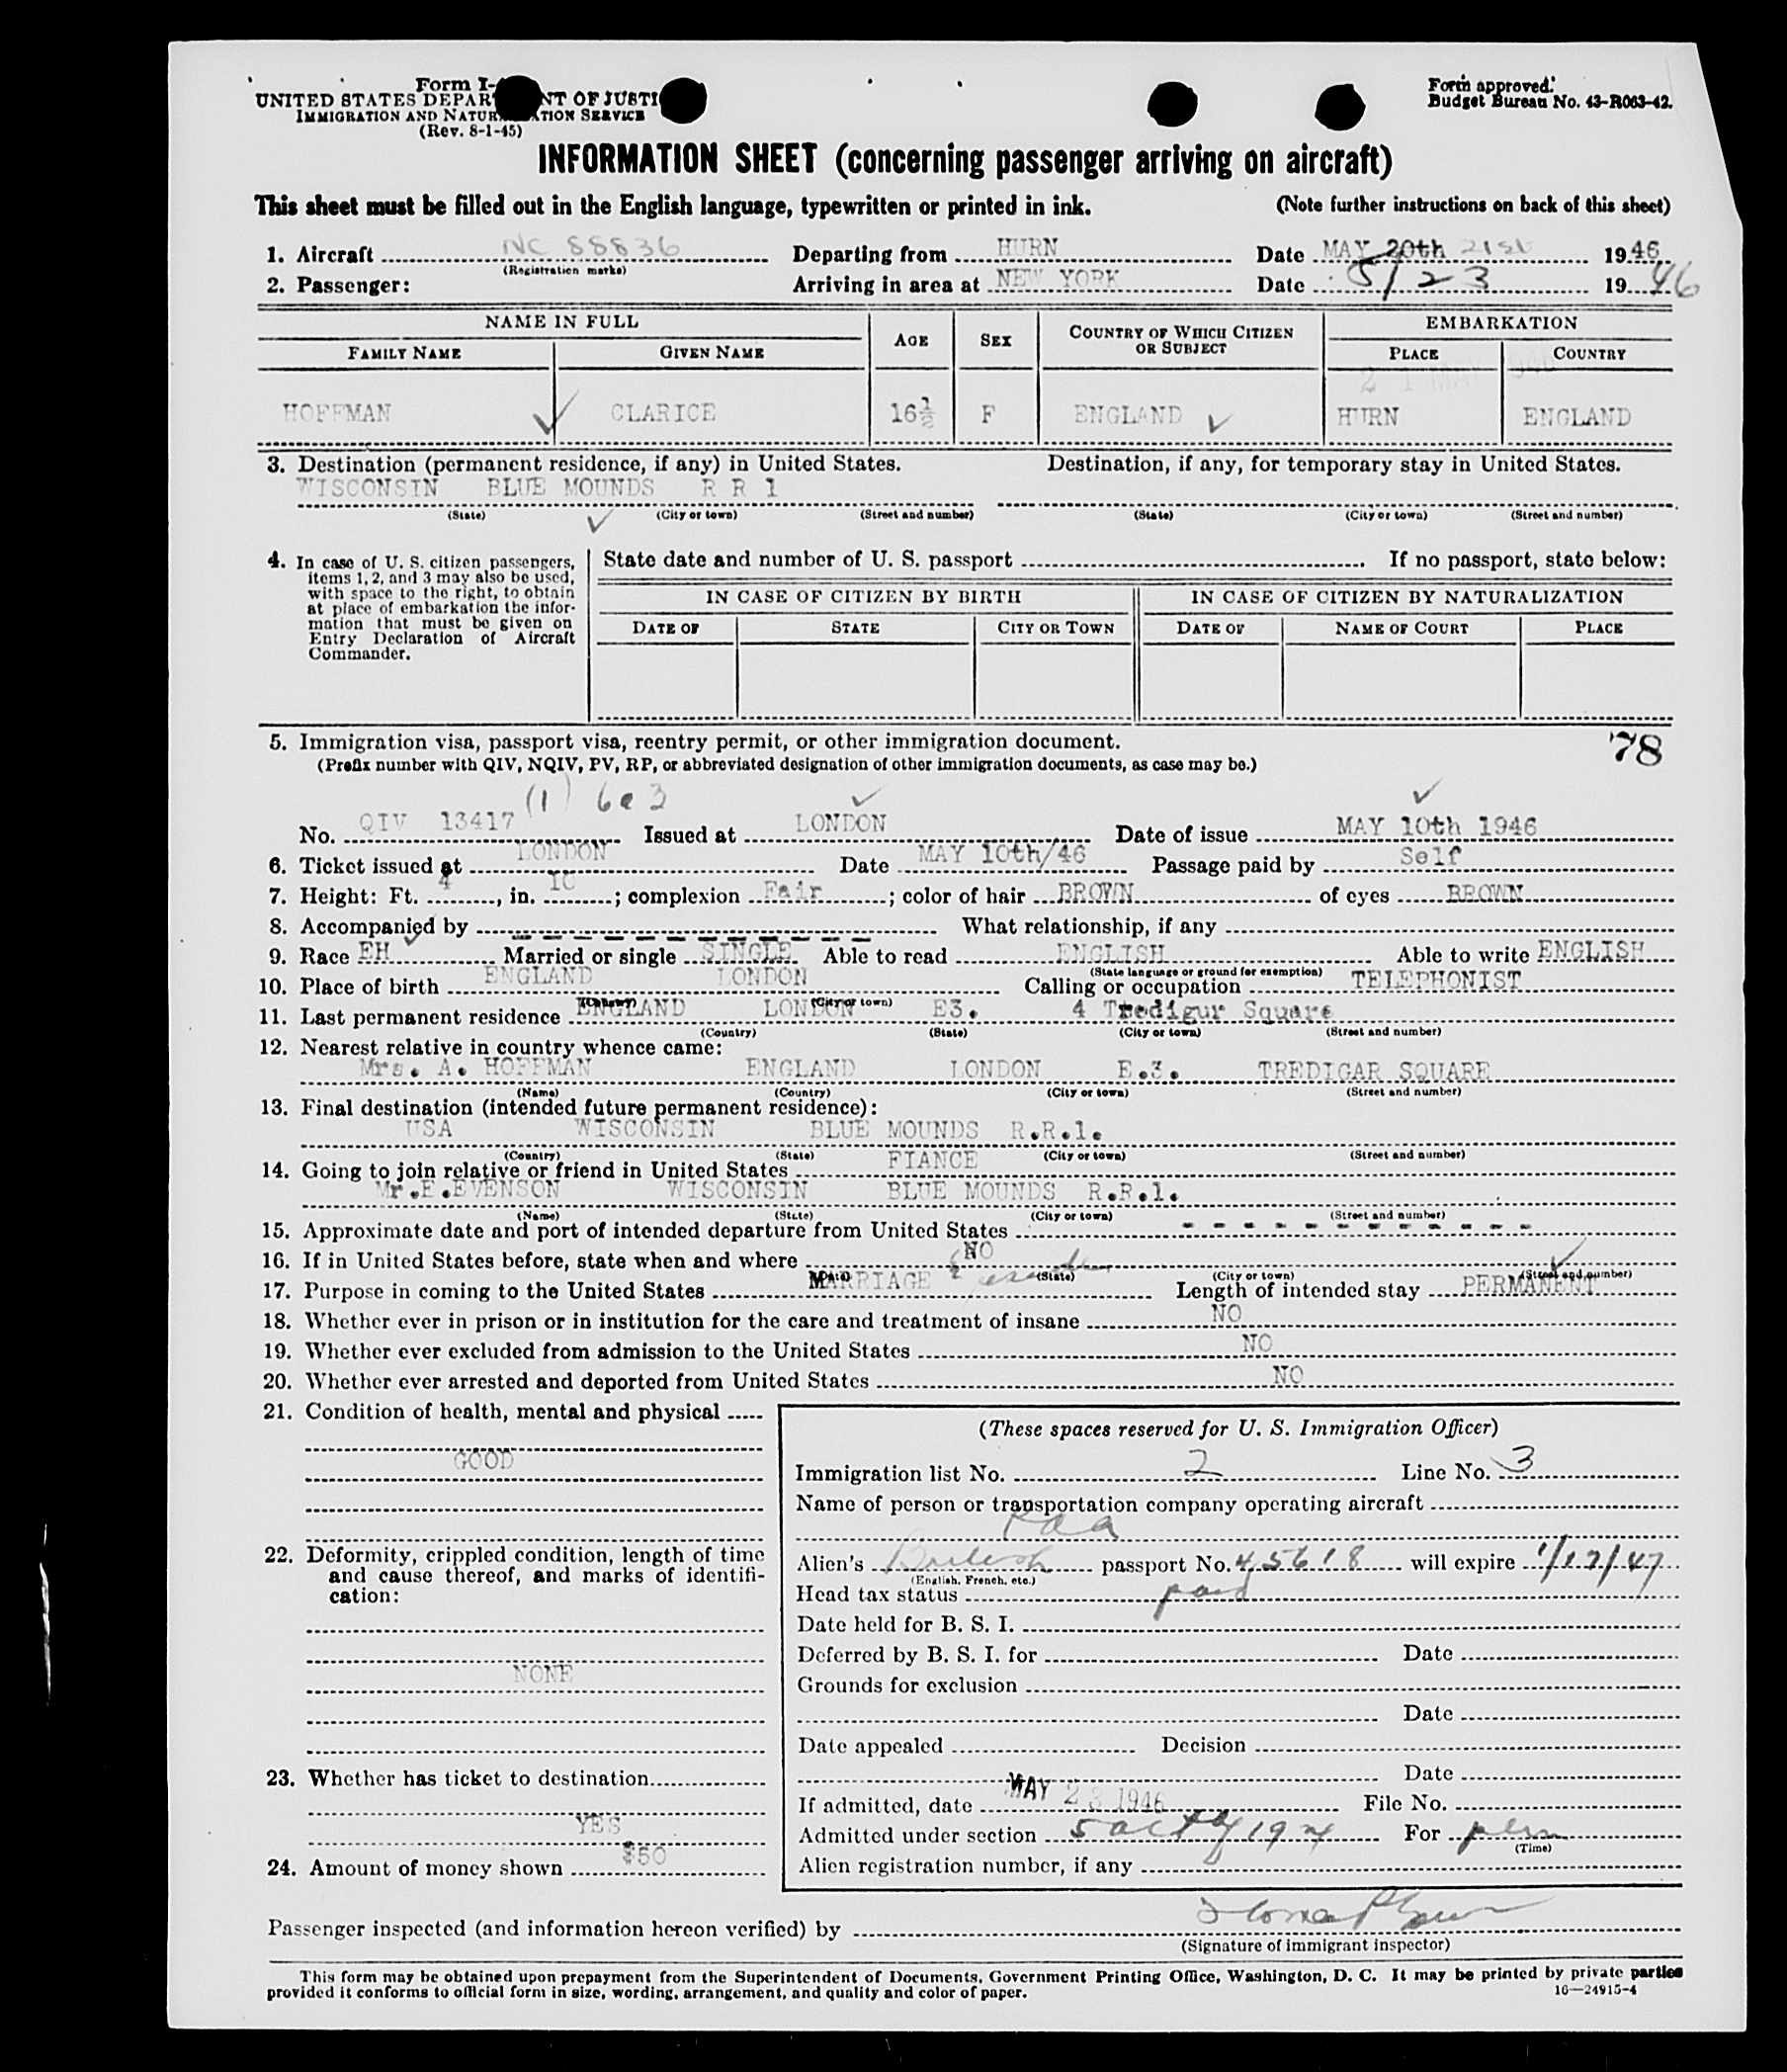 Form I-
UNITED STATES DEPAR NT OF JUSTI
IMMIGRATION AND NATUR TION SERVICE
(Rev. 8-1-45)
Form approved.
Budget Bureau No. 43-R063-42.
INFORMATION SHEET (concerning passenger arriving on aircraft)
This sheet must be filled out in the English language, typewritten or printed in ink. (Note further instructions on back of this sheet)
1. Aircraft NC 88836 Departing from HURN Date MAY 20th 21st 1946
(Registration marks)
2. Passenger: Arriving in area at NEW YORK Date 5/23 1946
NAME IN FULL AGE SEX COUNTRY OF WHICH CITIZEN OR SUBJECT EMBARKATION
FAMILY NAME GIVEN NAME PLACE COUNTRY
HOFFMAN CLARICE 16½ F ENGLAND HURN ENGLAND
3. Destination (permanent residence, if any) in United States. Destination, if any, for temporary stay in United States.
WISCONSIN BLUE MOUNDS R R 1
(State) (City or town) (Street and number) (State) (City or town) (Street and number)
4. In case of U. S. citizen passengers,
items 1, 2, and 3 may also be used,
with space to the right, to obtain
at place of embarkation the infor-
mation that must be given on
Entry Declaration of Aircraft
Commander.
State date and number of U. S. passport If no passport, state below:
IN CASE OF CITIZEN BY BIRTH IN CASE OF CITIZEN BY NATURALIZATION
DATE OF STATE CITY OR TOWN DATE OF NAME OF COURT PLACE
5. Immigration visa, passport visa, reentry permit, or other immigration document.
78
(Prefix number with QIV, NQIV, PV, RP, or abbreviated designation of other immigration documents, as case may be.)
(1) 6e3
No. QIV 13417 Issued at LONDON Date of issue MAY 10th 1946
6. Ticket issued at LONDON Date MAY 10th/46 Passage paid by Self
7. Height: Ft. 4, in. 10; complexion Fair; color of hair BROWN of eyes BROWN
8. Accompanied by What relationship, if any
9. Race EH Married or single SINGLE Able to read ENGLISH Able to write ENGLISH
(State language or ground for exemption)
10. Place of birth ENGLAND LONDON Calling or occupation TELEPHONIST
(Country) (City or town)
11. Last permanent residence ENGLAND LONDON E3. 4 Tredigur Square
(Country) (State) (City or town) (Street and number)
12. Nearest relative in country whence came:
Mrs. A. HOFFMAN ENGLAND LONDON E.3. TREDIGAR SQUARE
(Name) (Country) (City or town) (Street and number)
13. Final destination (intended future permanent residence):
USA WISCONSIN BLUE MOUNDS R.R.1.
(Country) (State) (City or town) (Street and number)
14. Going to join relative or friend in United States FIANCE
Mr.E.EVENSON WISCONSIN BLUE MOUNDS R.R.1.
(Name) (State) (City or town) (Street and number)
15. Approximate date and port of intended departure from United States
16. If in United States before, state when and where NO
(Date) (State) (City or town) (Street and number)
17. Purpose in coming to the United States MARRIAGE Length of intended stay PERMANENT
18. Whether ever in prison or in institution for the care and treatment of insane NO
19. Whether ever excluded from admission to the United States NO
20. Whether ever arrested and deported from United States NO
21. Condition of health, mental and physical
GOOD
22. Deformity, crippled condition, length of time
and cause thereof, and marks of identifi-
cation:
NONE
23. Whether has ticket to destination
YES
24. Amount of money shown $50
(These spaces reserved for U. S. Immigration Officer)
Immigration list No. 2 Line No. 3
Name of person or transportation company operating aircraft
Paa
Alien's British passport No. 45618 will expire 1/17/47
(English, French, etc.)
Head tax status paid
Date held for B. S. I.
Deferred by B. S. I. for Date
Grounds for exclusion
Date
Date appealed Decision
Date
If admitted, date MAY 23 1946 File No.
Admitted under section 5 act of 1924 For perm
(Time)
Alien registration number, if any
Passenger inspected (and information hereon verified) by
(Signature of immigrant inspector)
This form may be obtained upon prepayment from the Superintendent of Documents, Government Printing Office, Washington, D. C. It may be printed by private parties
provided it conforms to official form in size, wording, arrangement, and quality and color of paper. 16—24915-4